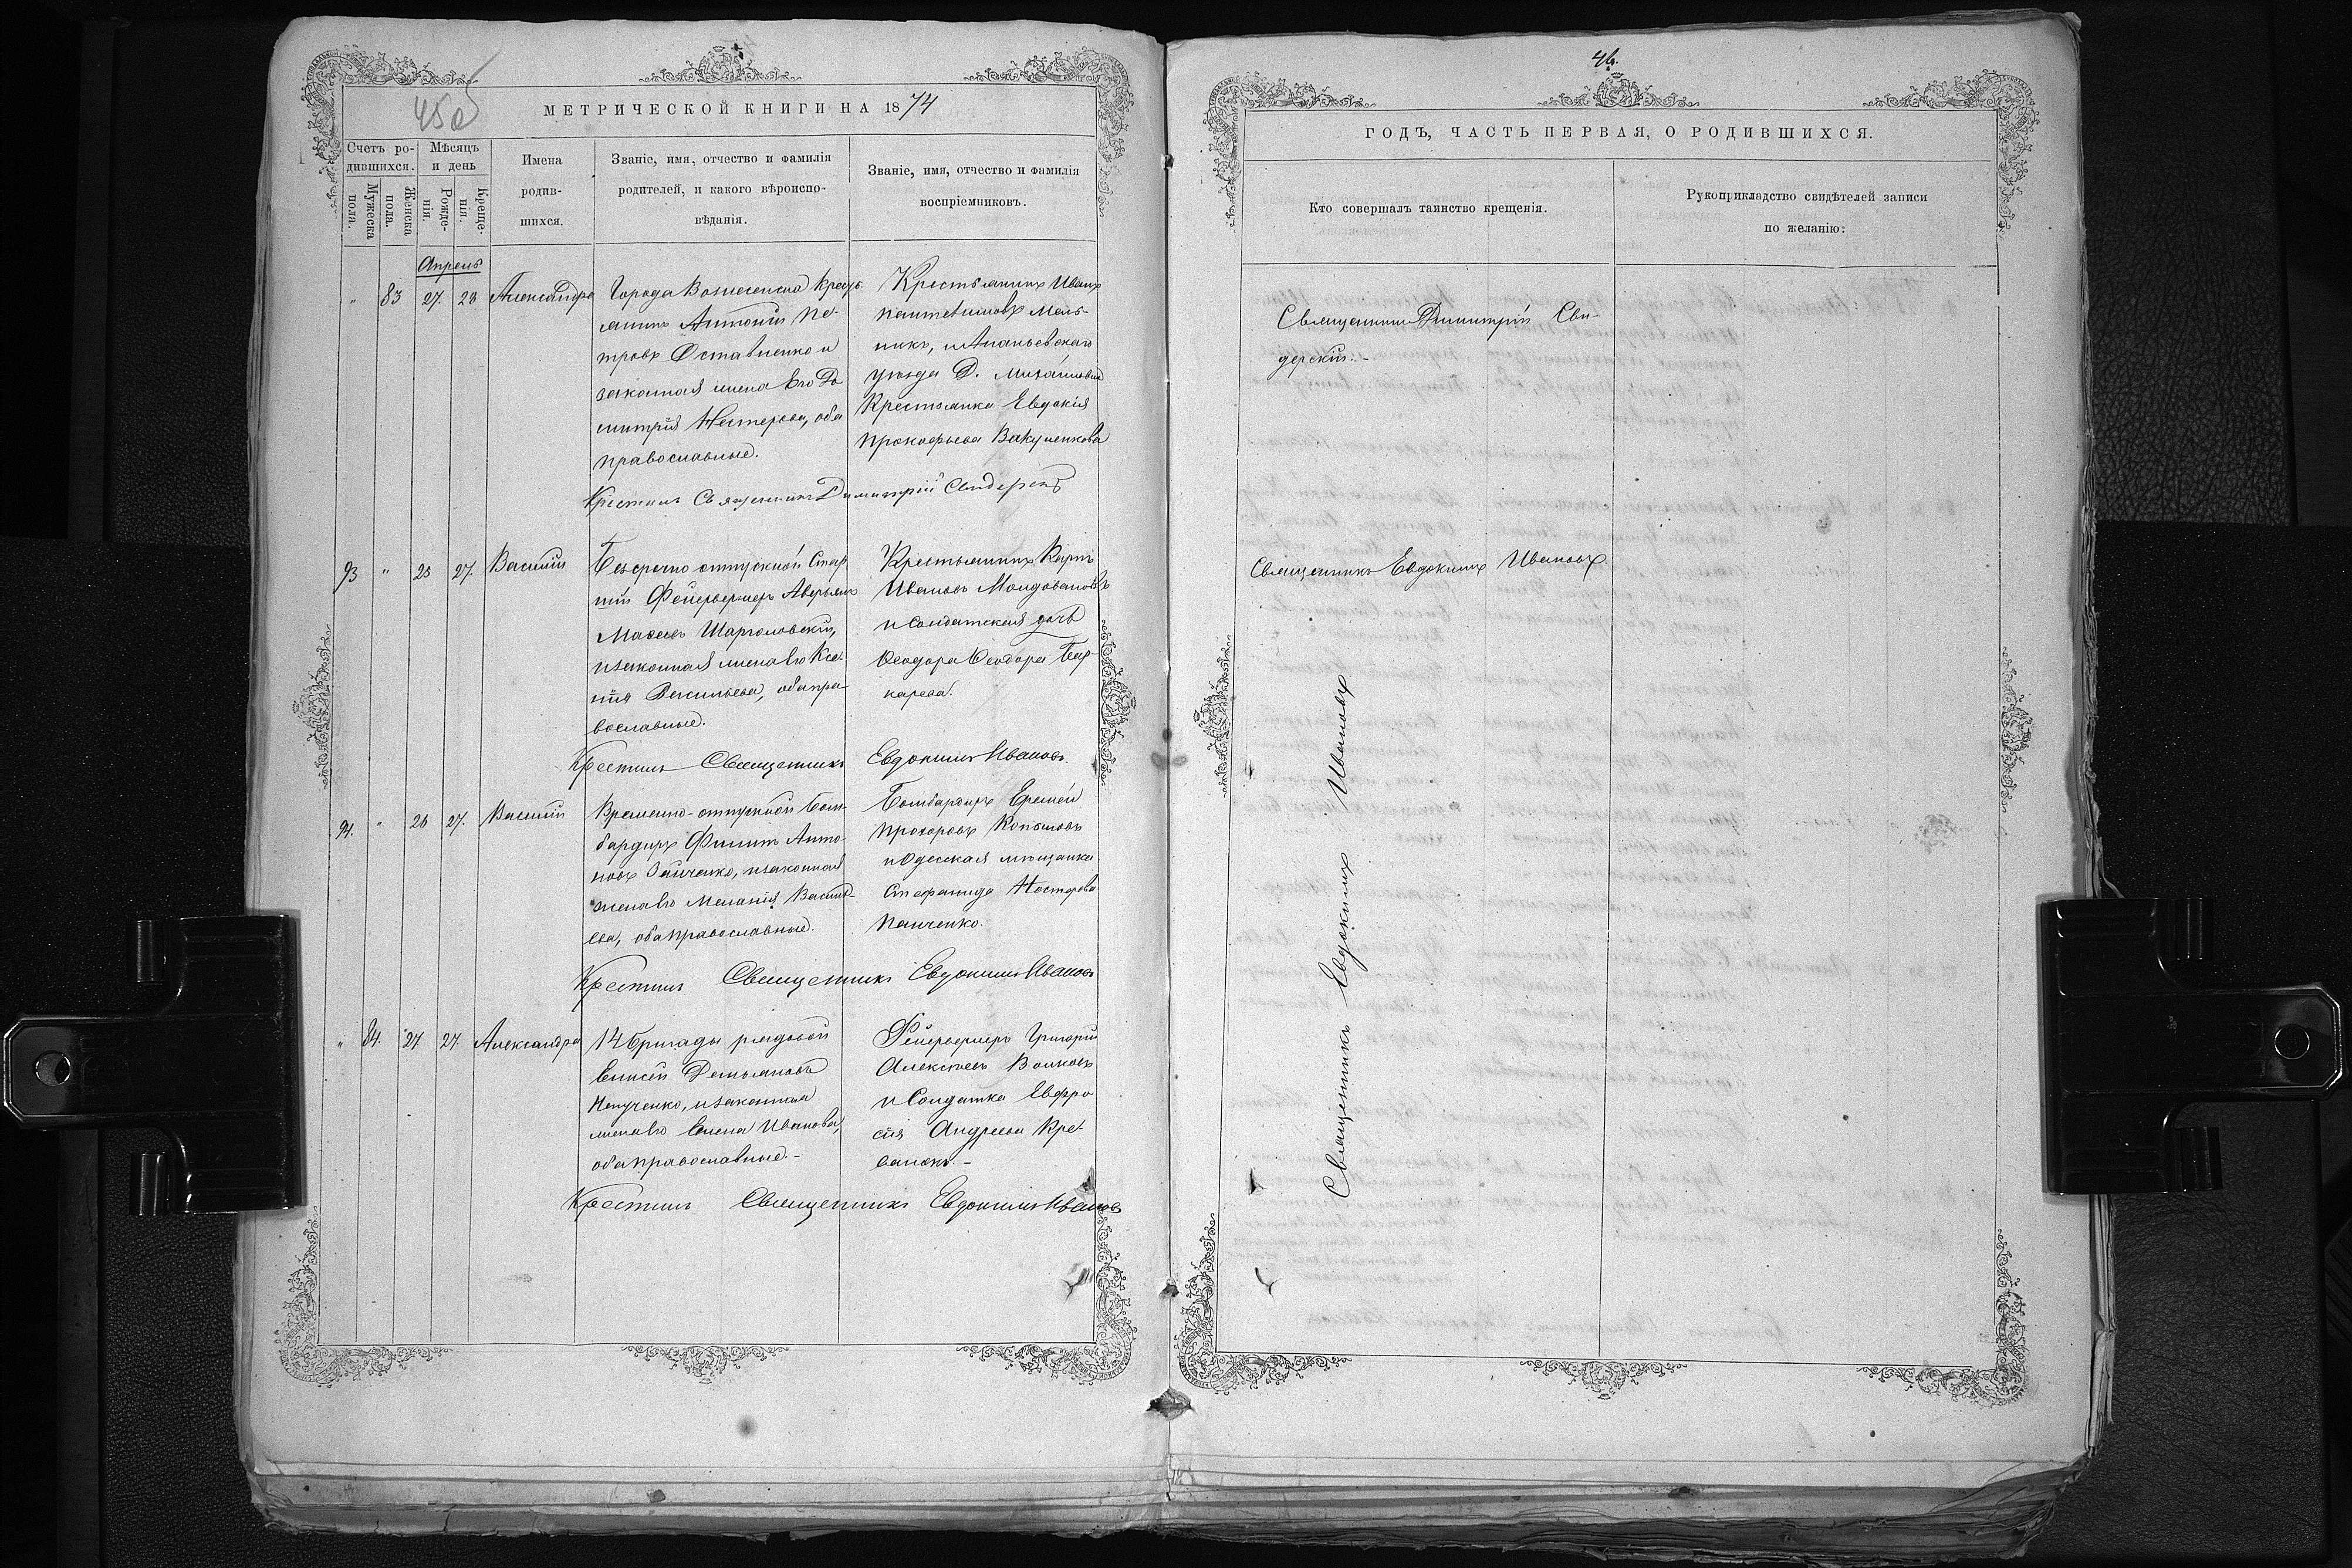 45об
МЕТРИЧЕСКОЙ КНИГИ НА 1874
Счетъ ро-
дившихся.
Мужеска
пола.
Женска
пола.
Мѣсяцъ
и день
Рожде-
нія.
Креще-
нія.
Имена
родив-
шихся.
Званіе, имя, отчество и фамилія
родителей, и какого вѣроиспо-
вѣданія.
Званіе, имя, отчество и фамилія
воспріемниковъ.
Апрель
" 83 27. 28 Александра
Города Вознесенска Крест-
янинъ Антоній Пе-
тровъ Оставненко и
законная жена его
Нестерова, оба
православные.
Крестьянинъ Иванъ
Мель-
никъ, и Ананьевскаго
уѣзда Д. Михайловки
Крестьянка Евдокія
Прокофьева Вакуленкова
Крестилъ Священникъ Димитрій Свидерскій
93 " 25 27. Василій
Безсрочно отпускной Стар-
шій Фейерверкеръ Аверьянъ
Шарголовскій,
и законная жена его Ксе-
нія Васильева, оба пра-
вославные.
Крестьянинъ Карпъ
Ивановъ Молдовановъ
и Солдатская дочь
Ѳеодора Ѳеодора
карева.
Крестилъ Священникъ Евдокимъ Ивановъ.
94. " 26 27. Василій
Временно-отпускной Бом-
бардиръ Филипъ Анто-
новъ Зайченко, и законная
жена его Меланія Василь-
ева, оба православные.
Бомбардиръ Еремей
Прохоровъ Копыловъ
и Одесская мѣщанка
Стефанида Нестерова
Панченко.
Крестилъ Священникъ Евдокимъ Ивановъ
" 84. 27. 27. Александра
14 бригады рядовой
Елисей Демьяновъ
и законная
жена его Елена Иванова,
оба православные.-
Фейерверкеръ Григорій
Алексѣевъ Волковъ
и Солдатка Евфро-
сія Андреева
Крестилъ Священникъ Евдокимъ Ивановъ
46.
ГОДЪ, ЧАСТЬ ПЕРВАЯ, О РОДИВШИХСЯ.
Кто совершалъ таинство крещенія.
Рукоприкладство свидѣтелей записи
по желанію:
Священникъ Димитрій Сви-
дерскій.-
Священникъ Евдокимъ Ивановъ
Священникъ Евдокимъ Ивановъ